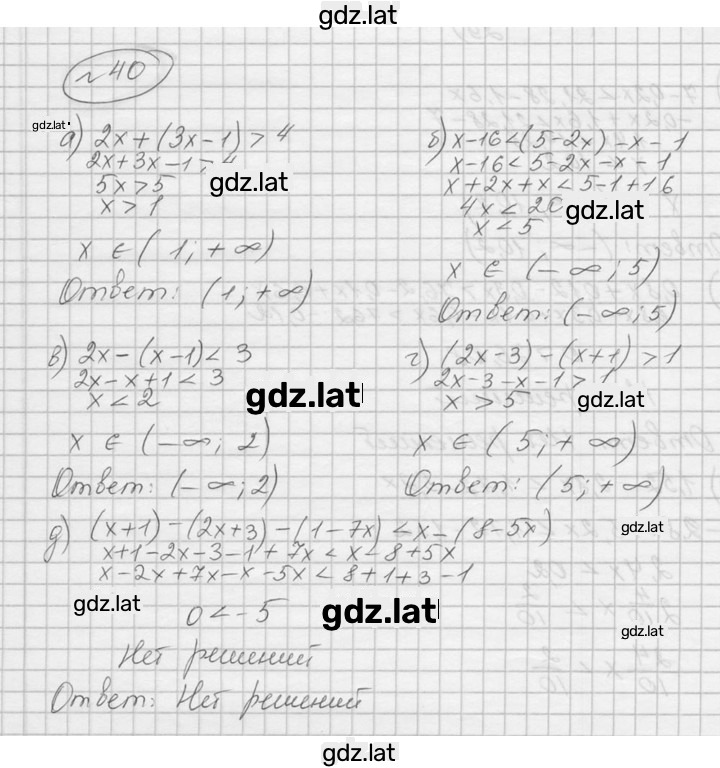 gdz.lat
№40
gdz.lat
а) 2x+(3x-1)>4
2x+3x-1>4
5x>5
x>1
gdz.lat
x ∈ (1;+∞)
Ответ: (1;+∞)
б) x-16<(5-2x)-x-1
x-16<5-2x-x-1
x+2x+x<5-1+16
4x<20
gdz.lat
x<5
x ∈ (-∞;5)
Ответ: (-∞;5)
в) 2x-(x-1)<3
2x-x+1<3
x<2
gdz.lat
x ∈ (-∞; 2)
Ответ: (-∞;2)
г) (2x-3)-(x+1)>1
2x-3-x-1>1
x>5
gdz.lat
x ∈ (5;+∞)
Ответ: (5;+∞)
д) (x+1)-(2x+3)-(1-7x)<x-(8-5x)
gdz.lat
x+1-2x-3-1+7x<x-8+5x
x-2x+7x-x-5x<8+1+3-1
gdz.lat
0<-5
gdz.lat
gdz.lat
Нет решений
Ответ: Нет решений
gdz.lat